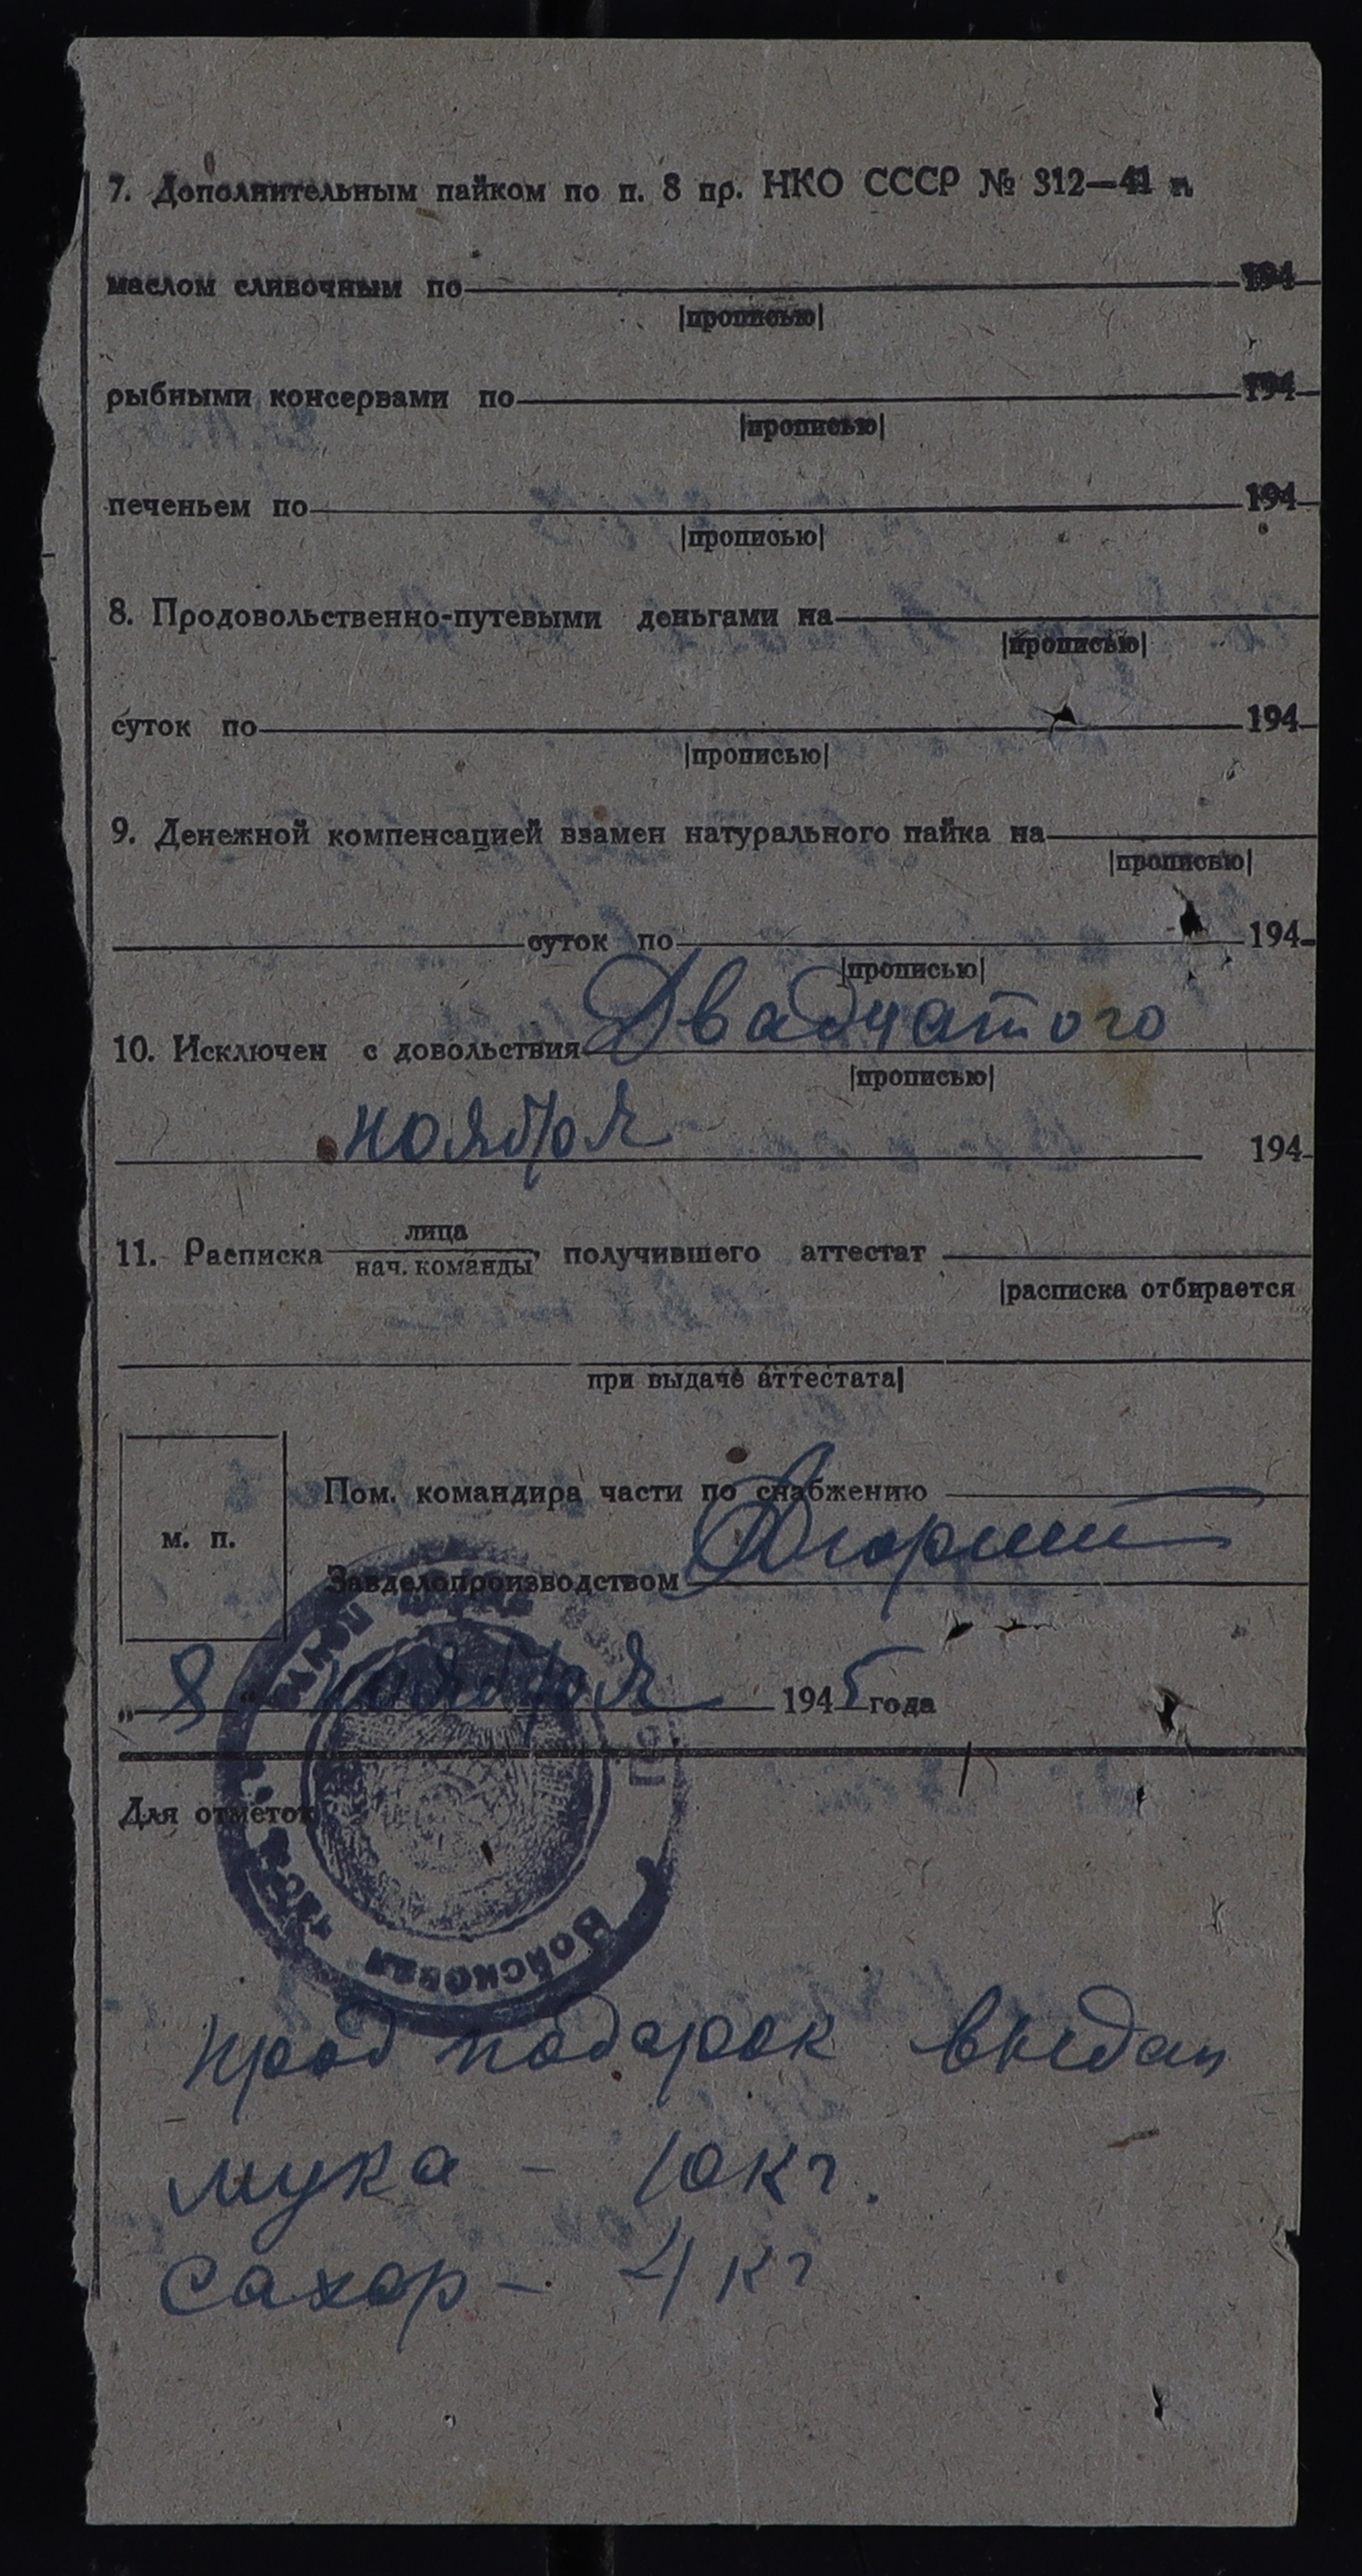 7. Дополнительным пайком по п. 8 пр. НКО СССР № 312—41 г.
маслом сливочным по 194
|прописью|
рыбными консервами по 194
|прописью|
печеньем по 194
|прописью|
8. Продовольственно-путевыми деньгами на
|прописью|
суток по 194
|прописью|
9. Денежной компенсацией взамен натурального пайка на
|прописью|
суток по 194
|прописью|
10. Исключен с довольствия Двадцатого
|прописью|
ноября 194
11. Расписка лица
нач. команды, получившего аттестат
|расписка отбирается
при выдаче аттестата|
Пом. командира части по снабжению
м. п.
Завделопроизводством
„8“ ноября 1945 года
Для отметок
Войсковая часть
прод подарок выдан
мука - 10 кг.
сахар - 4 кг